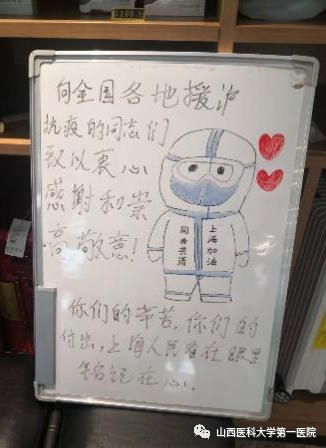 向全国各地援沪
抗疫的同志们
致以衷心
感谢和崇
高敬意!
上海加油
同舟共济
你们的辛苦,你们的
付出,上海人民看在眼里
铭记在心.
山西医科大学第一医院